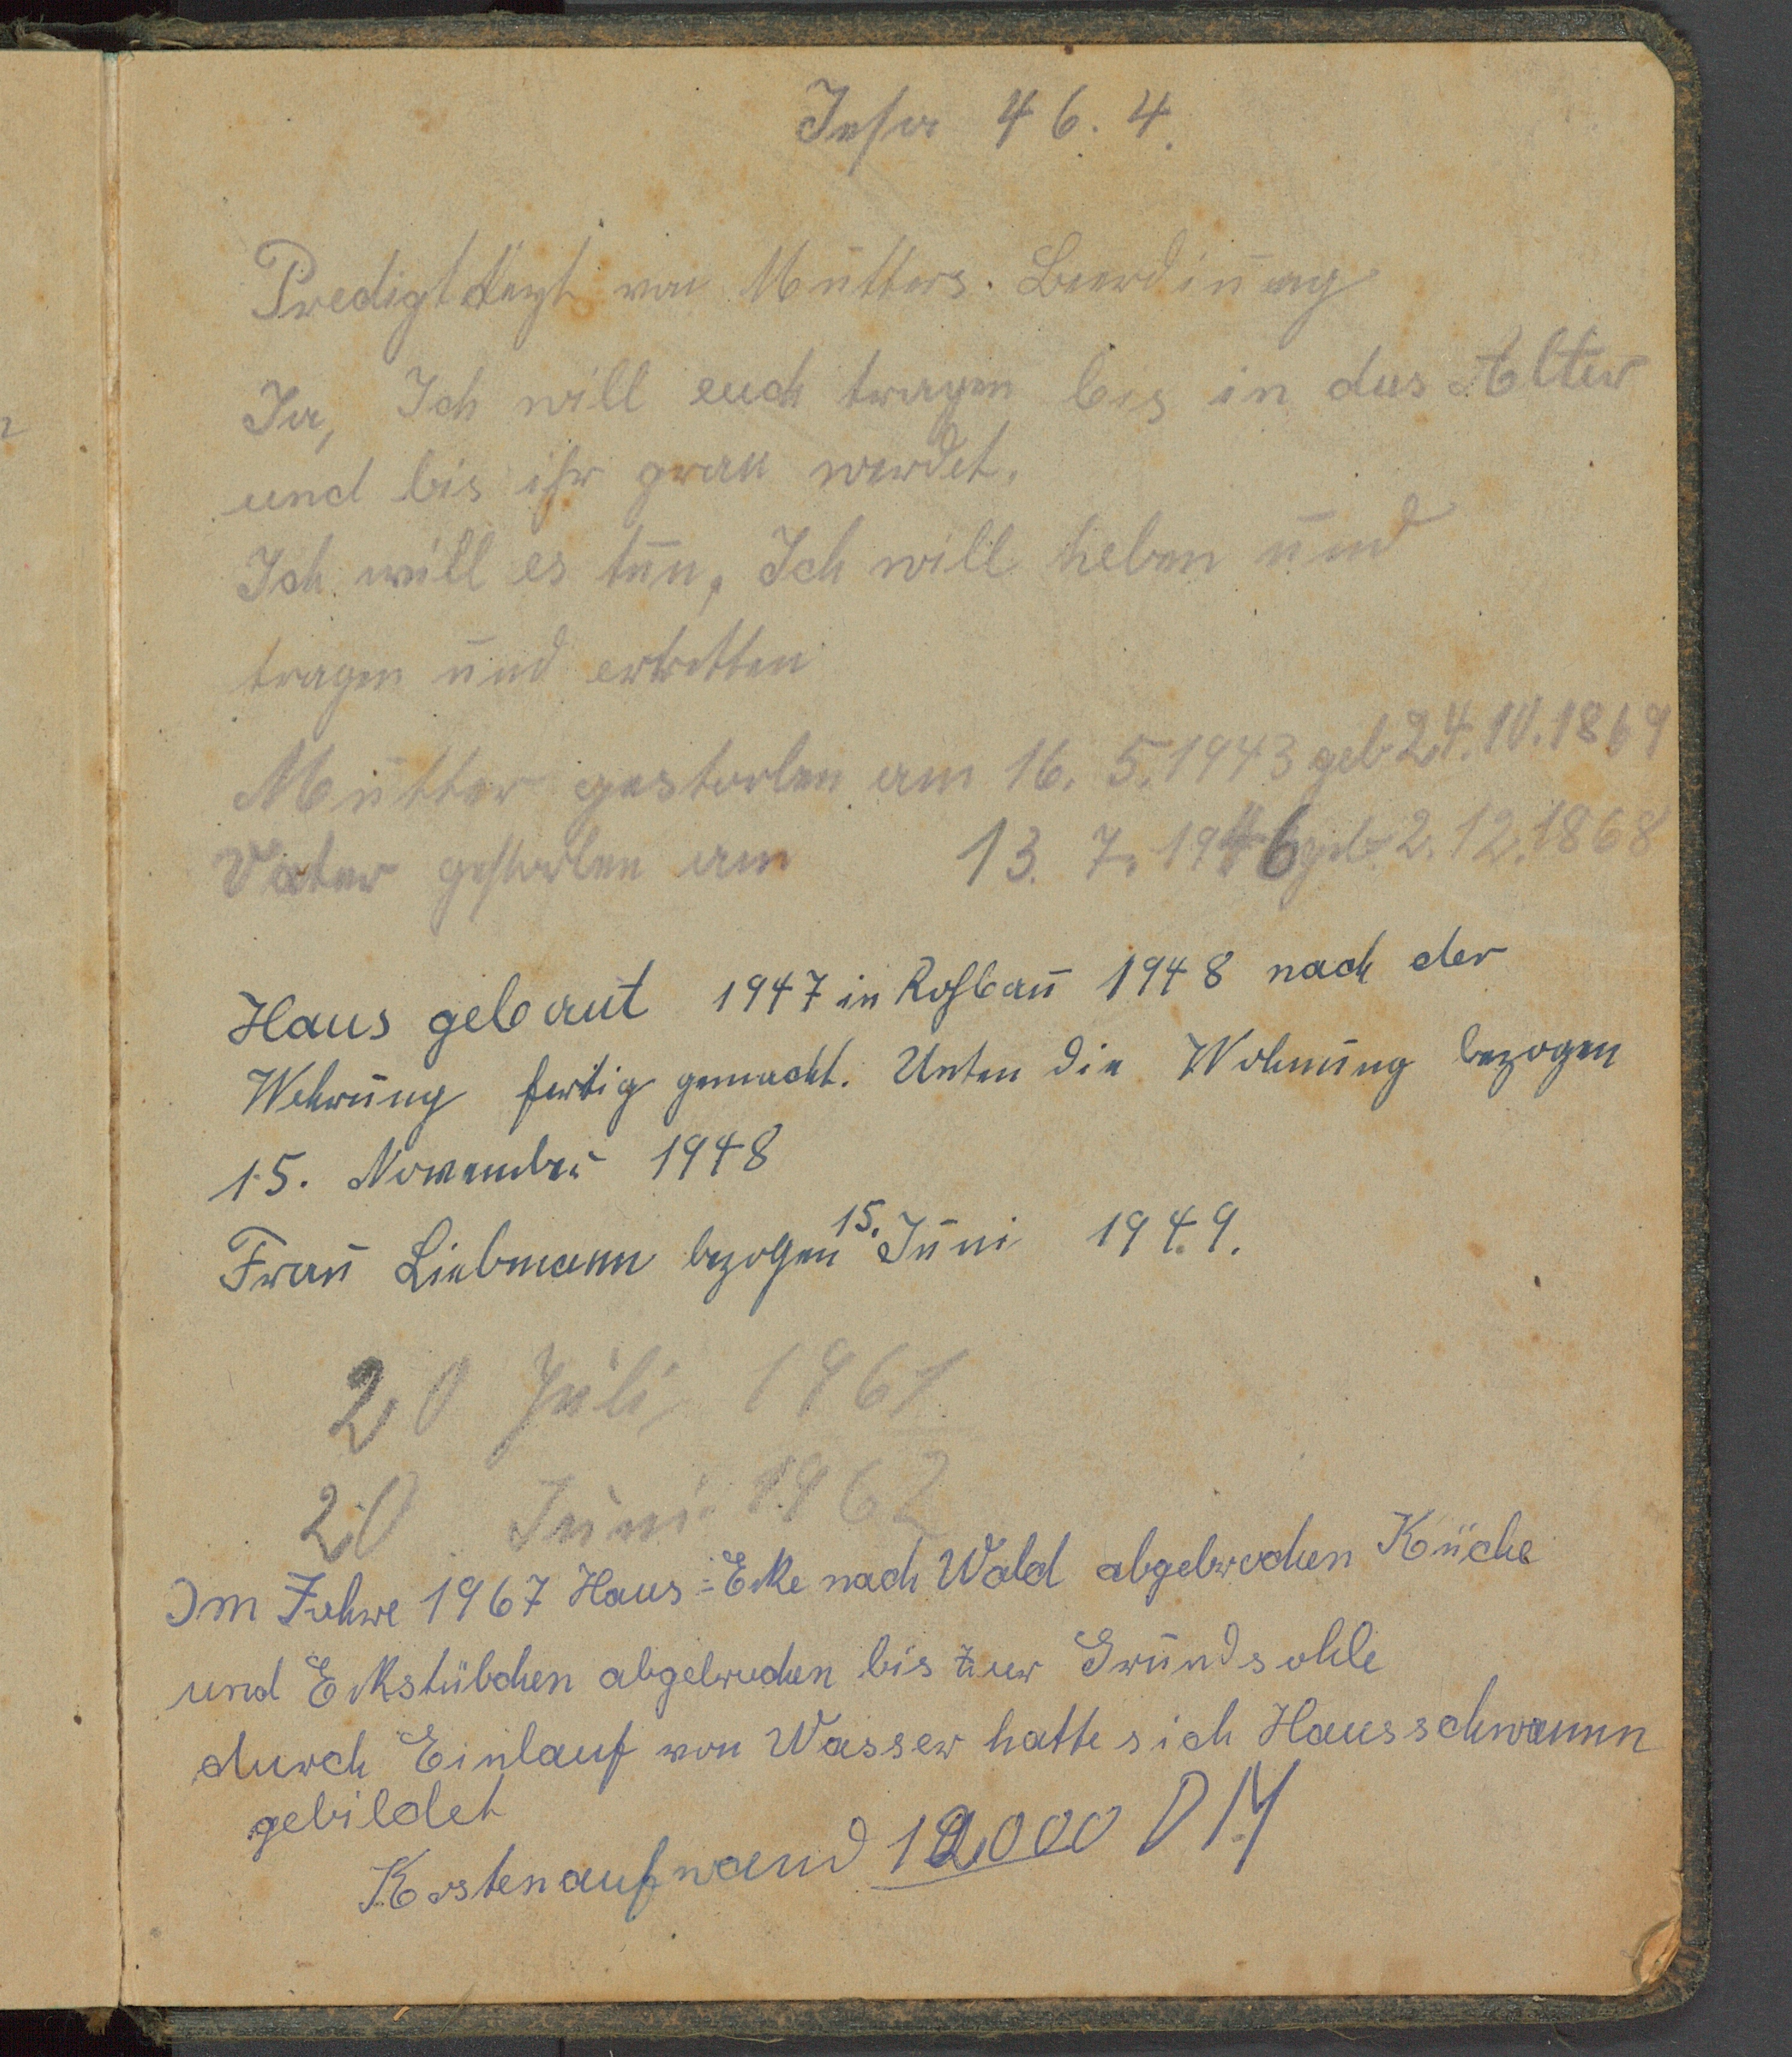 Jesa 46. 4.
Predigttext von Mutters. Beerdinung
Ja, Ich will euch tragen bis in das Alter
und bis ihr grau werdet.
Ich will es tun, Ich will heben und
tragen und erretten
Mutter gestorben am 16. 5. 1943 geb 24. 10. 1869
Vater gestorben am 13. 7. 1946 geb 2. 12. 1868
Haus gebaut 1947 in Rohbau 1948 nach der
Wehrung fertig gemacht. Unten die Wohnung bezogen
15. November 1948
Frau Liebmann bezogen 15. Juni 1949.
20 Juli 1961
20 Juni 1962
Im Jahre 1967 Haus=Ecke nach Wald abgebrochen Küche
und Eckstübchen abgebrochen bis zur Grundsohle
durch Einlauf von Wasser hatte sich Hausschwamm
gebildet
Kostenaufwand 12000 DM